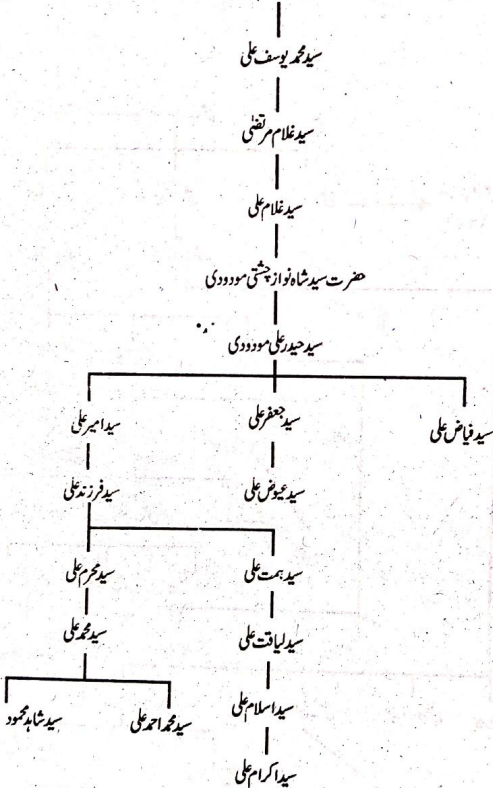 سید محمد یوسف علی
سید غلام مرتضیٰ
سید غلام علی
حضرت سید شاہ نواز چشتی مودودی
سید حیدر علی مودودی
سید فیاض علی
سید جعفر علی
سید امیر علی
سید عیوض علی
سید فرزند علی
سید ہمت علی
سید محرم علی
سید لیاقت علی
سید محمد علی
سید اسلام علی
سید محمد احمد علی
سید شاہد محمود
سید اکرام علی